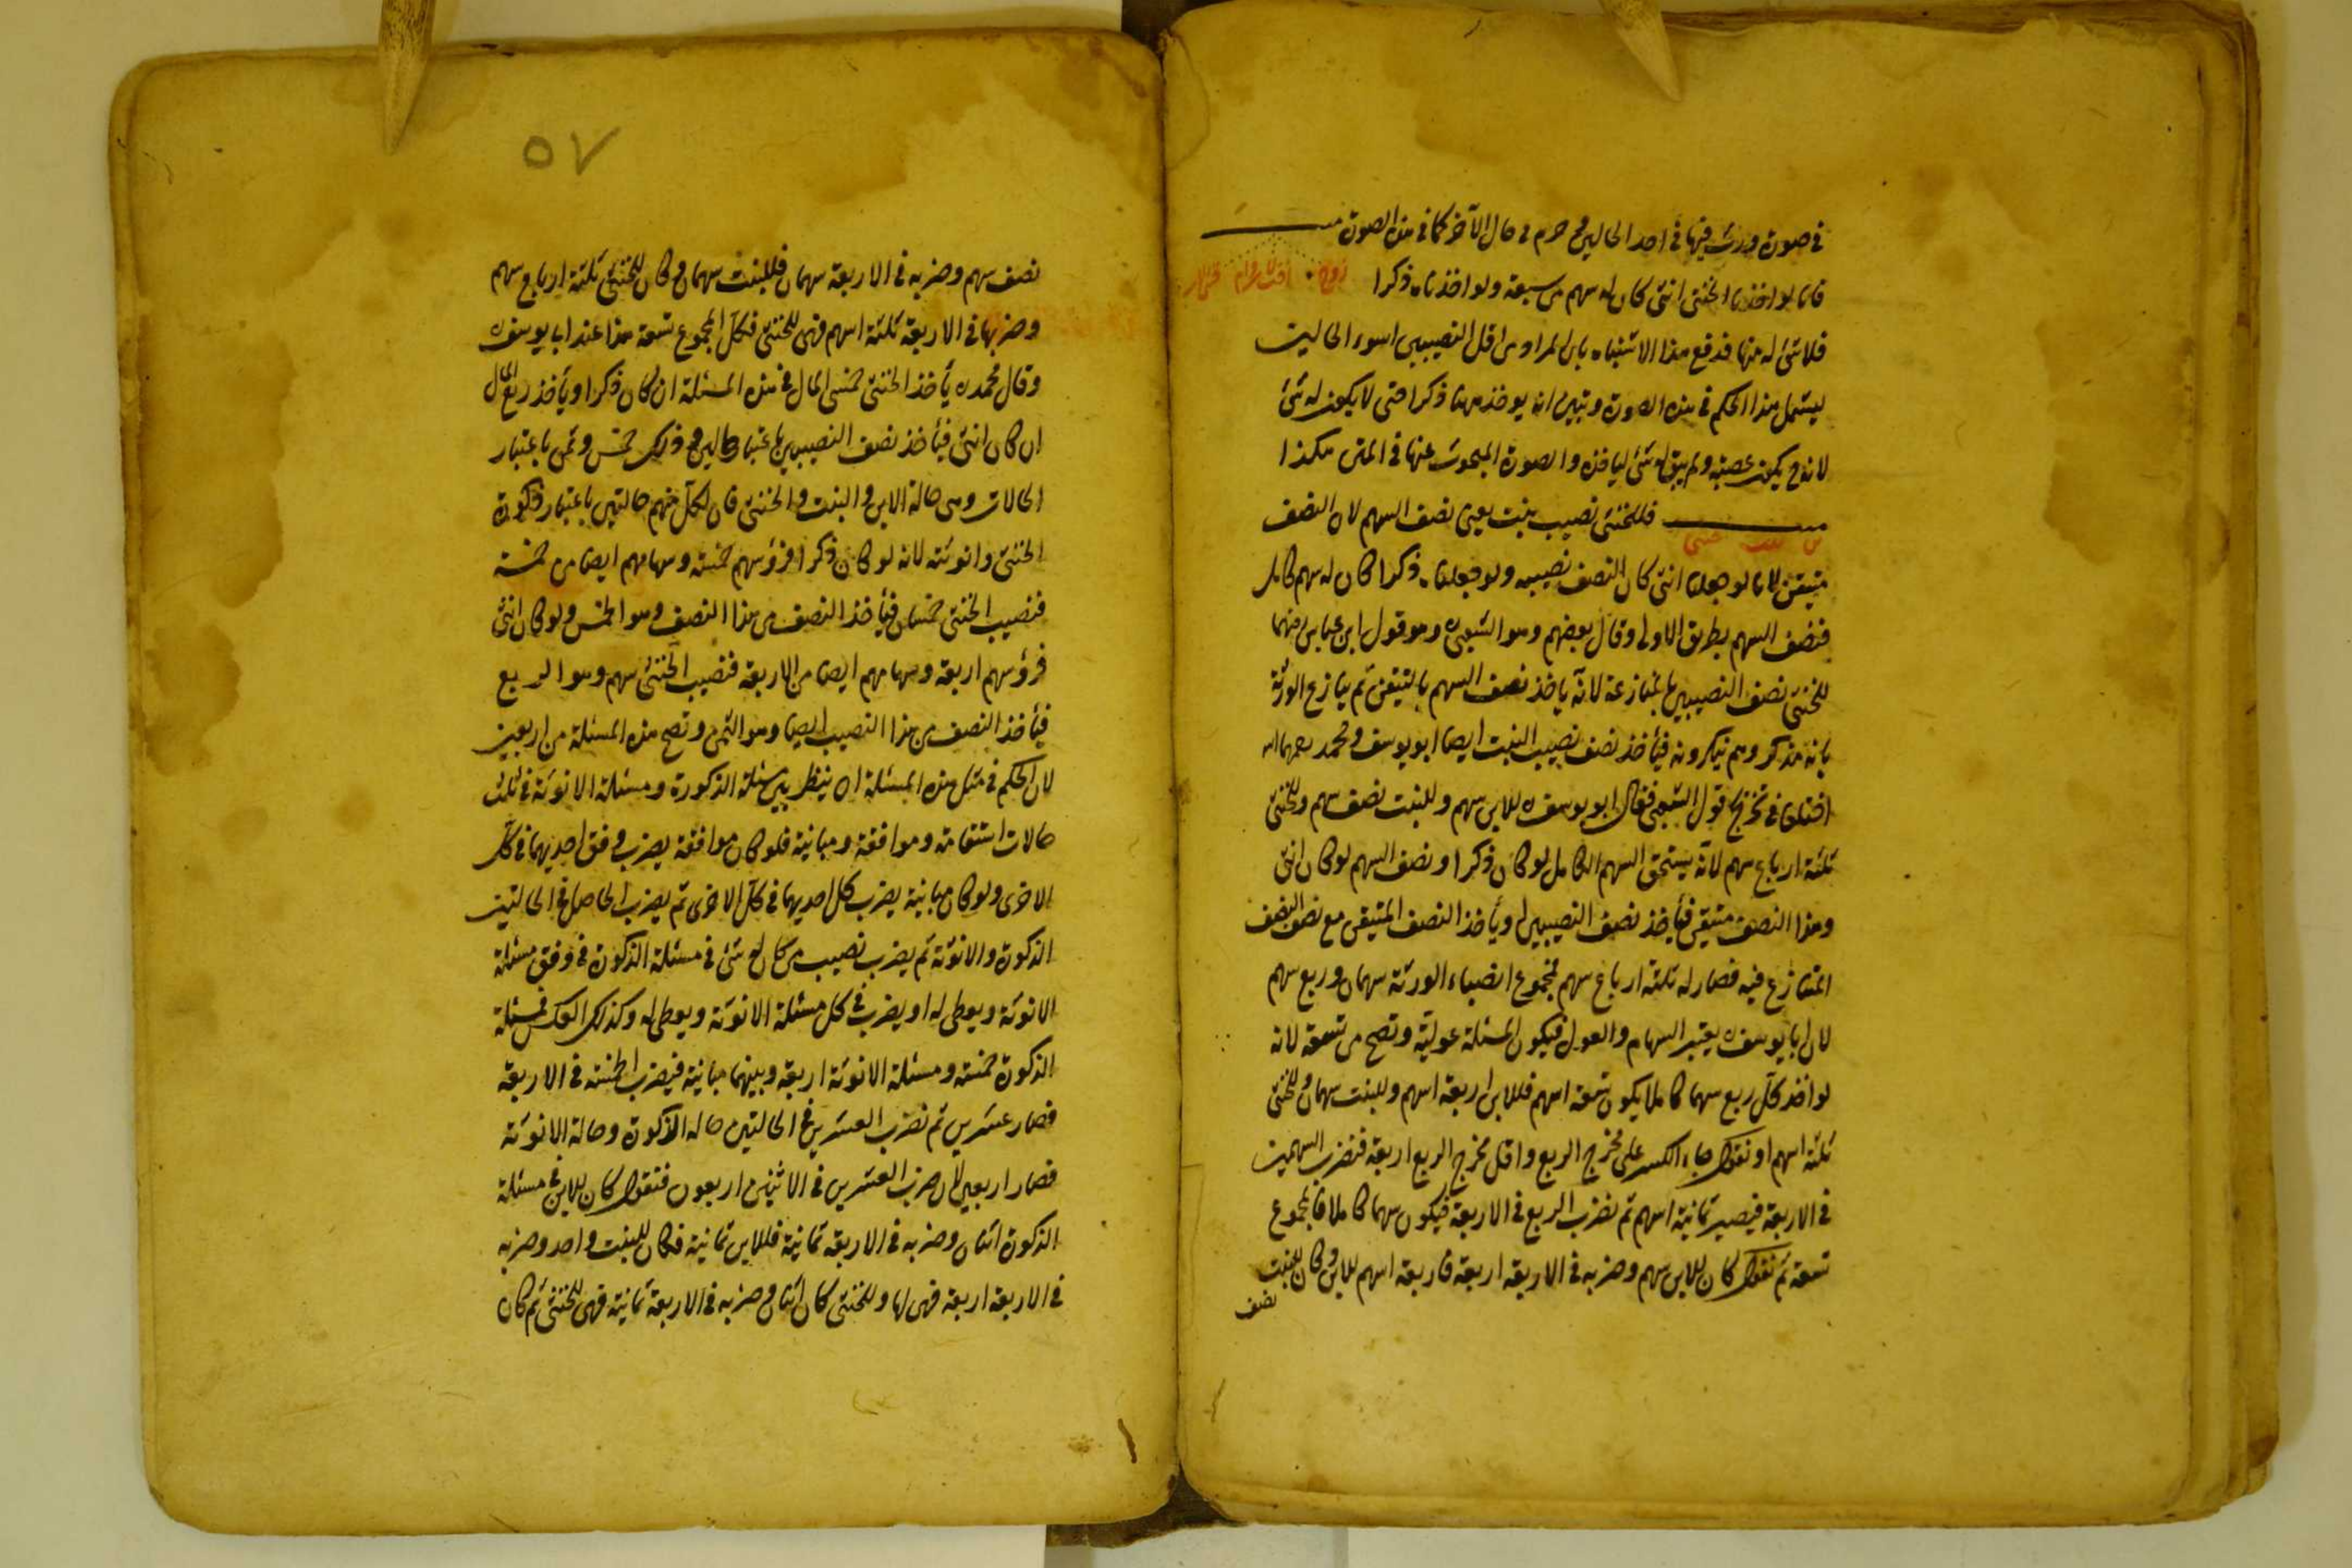 في صورة ورث فيها في احد الحالين و حرم في حال الآخر كما في هذه الصورة مسـ
زوج اخت لاب وام
فانا لو اخذنا الخنثى انثى كان له سهم من سبعة ولو اخذناه ذكرا
فلا شئ له منها فدفع هذا الاشتباه بان المراد من اقل النصيبين اسوء الحالين
ليشمل هذا الحكم في هذه الصورة وتبين انه يوخذ ههنا ذكرا حتى لا يكون له شئ
لانه ح يكون عصبة ولم يبق له شئ لياخذه والصورة المبحوث عنها في المتن هكذا
مسـ فللخنثى نصيب بنت يعنى نصف السهم لان النصف
ابن بنت خنثى
متيقن لانا لو جعلناه انثى كان النصف نصيبه ولو جعلناه ذكرا كان له سهم كامل
فنصف السهم بطريق الاولى وقال بعضهم وهو الشعبى وهو قول ابن عباس رضهما
للخنثى نصف النصيبين بالمنازعة لانه ياخذ نصف السهم بالتيقن ثم ينازع الورثة
بانه مذكر وهم ينكرونه فيأخذ نصف نصيب البنت ايضا ابو يوسف و محمد رحمهما الله
اختلفا في تخريج قول الشعبى فقال ابو يوسف ره للابن سهم وللبنت نصف سهم وللخنثى
ثلثة ارباع سهم لانه يستحق السهم الكامل لو كان ذكرا ونصف السهم لو كان انثى
وهذا النصف متيقن فيأخذ نصف النصيبين او يأخذ النصف المتيقن مع نصف النصف
المتنازع فيه فصار له ثلثة ارباع سهم فمجموع انصباء الورثة سهمان وربع سهم
لان ابا يوسف ره يعتبر السهام والعول فيكون المسئلة عولية وتصح من تسعة لانه
لو اخذ كل ربع سهما كاملا يكون تسعة اسهم فللابن اربعة اسهم وللبنت سهمان وللخنثى
ثلثة اسهم او نقول جاء الكسر على مخرج الربع واقل مخرج الربع اربعة فنضرب السهمين
في الاربعة فيصير ثمانية اسهم ثم نضرب الربع في الاربعة فيكون سهما كاملا فالمجموع
تسعة ثم نقول كان للابن سهم وضربه في الاربعة اربعة فاربعة اسهم للابن وكان للبنت
نصف
٥٧
نصف سهم وضربه في الاربعة سهمان فللبنت سهمان وكان للخنثى ثلثة ارباع سهم
وضربها في الاربعة ثلثة اسهم فهى للخنثى فكل المجموع تسعة هذا عند ابى يوسف ره
وقال محمد ره يأخذ الخنثى خمسى المال في هذه المسئلة ان كان ذكرا ويأخذ ربع المال
ان كان انثى فيأخذ نصف النصيبين باعتبار حالين و ذلك خمس وثمن باعتبار
الحالات وهى حالة الابن و البنت و الخنثى فان لكل منهم حالتين باعتبار ذكورة
الخنثى وانوثته لانه لو كان ذكرا فرؤسهم خمسة وسهامهم ايضا من خمسة
فنصيب الخنثى خمسان فيأخذ النصف من هذا النصف وهو الخمس ولو كان انثى
فرؤسهم اربعة وسهامهم ايضا من الاربعة فنصيب الخنثى سهم وهو الربع
فيأخذ النصف من هذا النصيب ايضا وهو الثمن وتصح هذه المسئلة من اربعين
لان الحكم في مثل هذه المسئلة ان ينظر بين مسئلة الذكورة ومسئلة الانوثة في ثلث
حالات استقامة وموافقة ومباينة فلو كان موافقة يضرب وفق احديهما في كل
الاخرى ولو كان مباينة يضرب كل احديهما في كل الاخرى ثم يضرب الحاصل في الحالتين
الذكورة والانوثة ثم يضرب نصيب من كان له شئ في مسئلة الذكورة في وفق مسئلة
الانوثة ويعطى له او يضرب في كل مسئلة الانوثة ويعطى له وكذلك العكس فمسئلة
الذكورة خمسة ومسئلة الانوثة اربعة وبينهما مباينة فيضرب الخمسة في الاربعة
فصار عشرين ثم نضرب العشرين في الحالتين حالة الذكورة وحالة الانوثة
فصار اربعين لان ضرب العشرين في الاثنين اربعون فنقول كان للابن في مسئلة
الذكورة اثنان وضربه في الاربعة ثمانية فللابن ثمانية فكان للبنت واحد وضربه
في الاربعة اربعة فهى لها وللخنثى كان اثنان وضربه في الاربعة ثمانية فهى للخنثى ثم كان